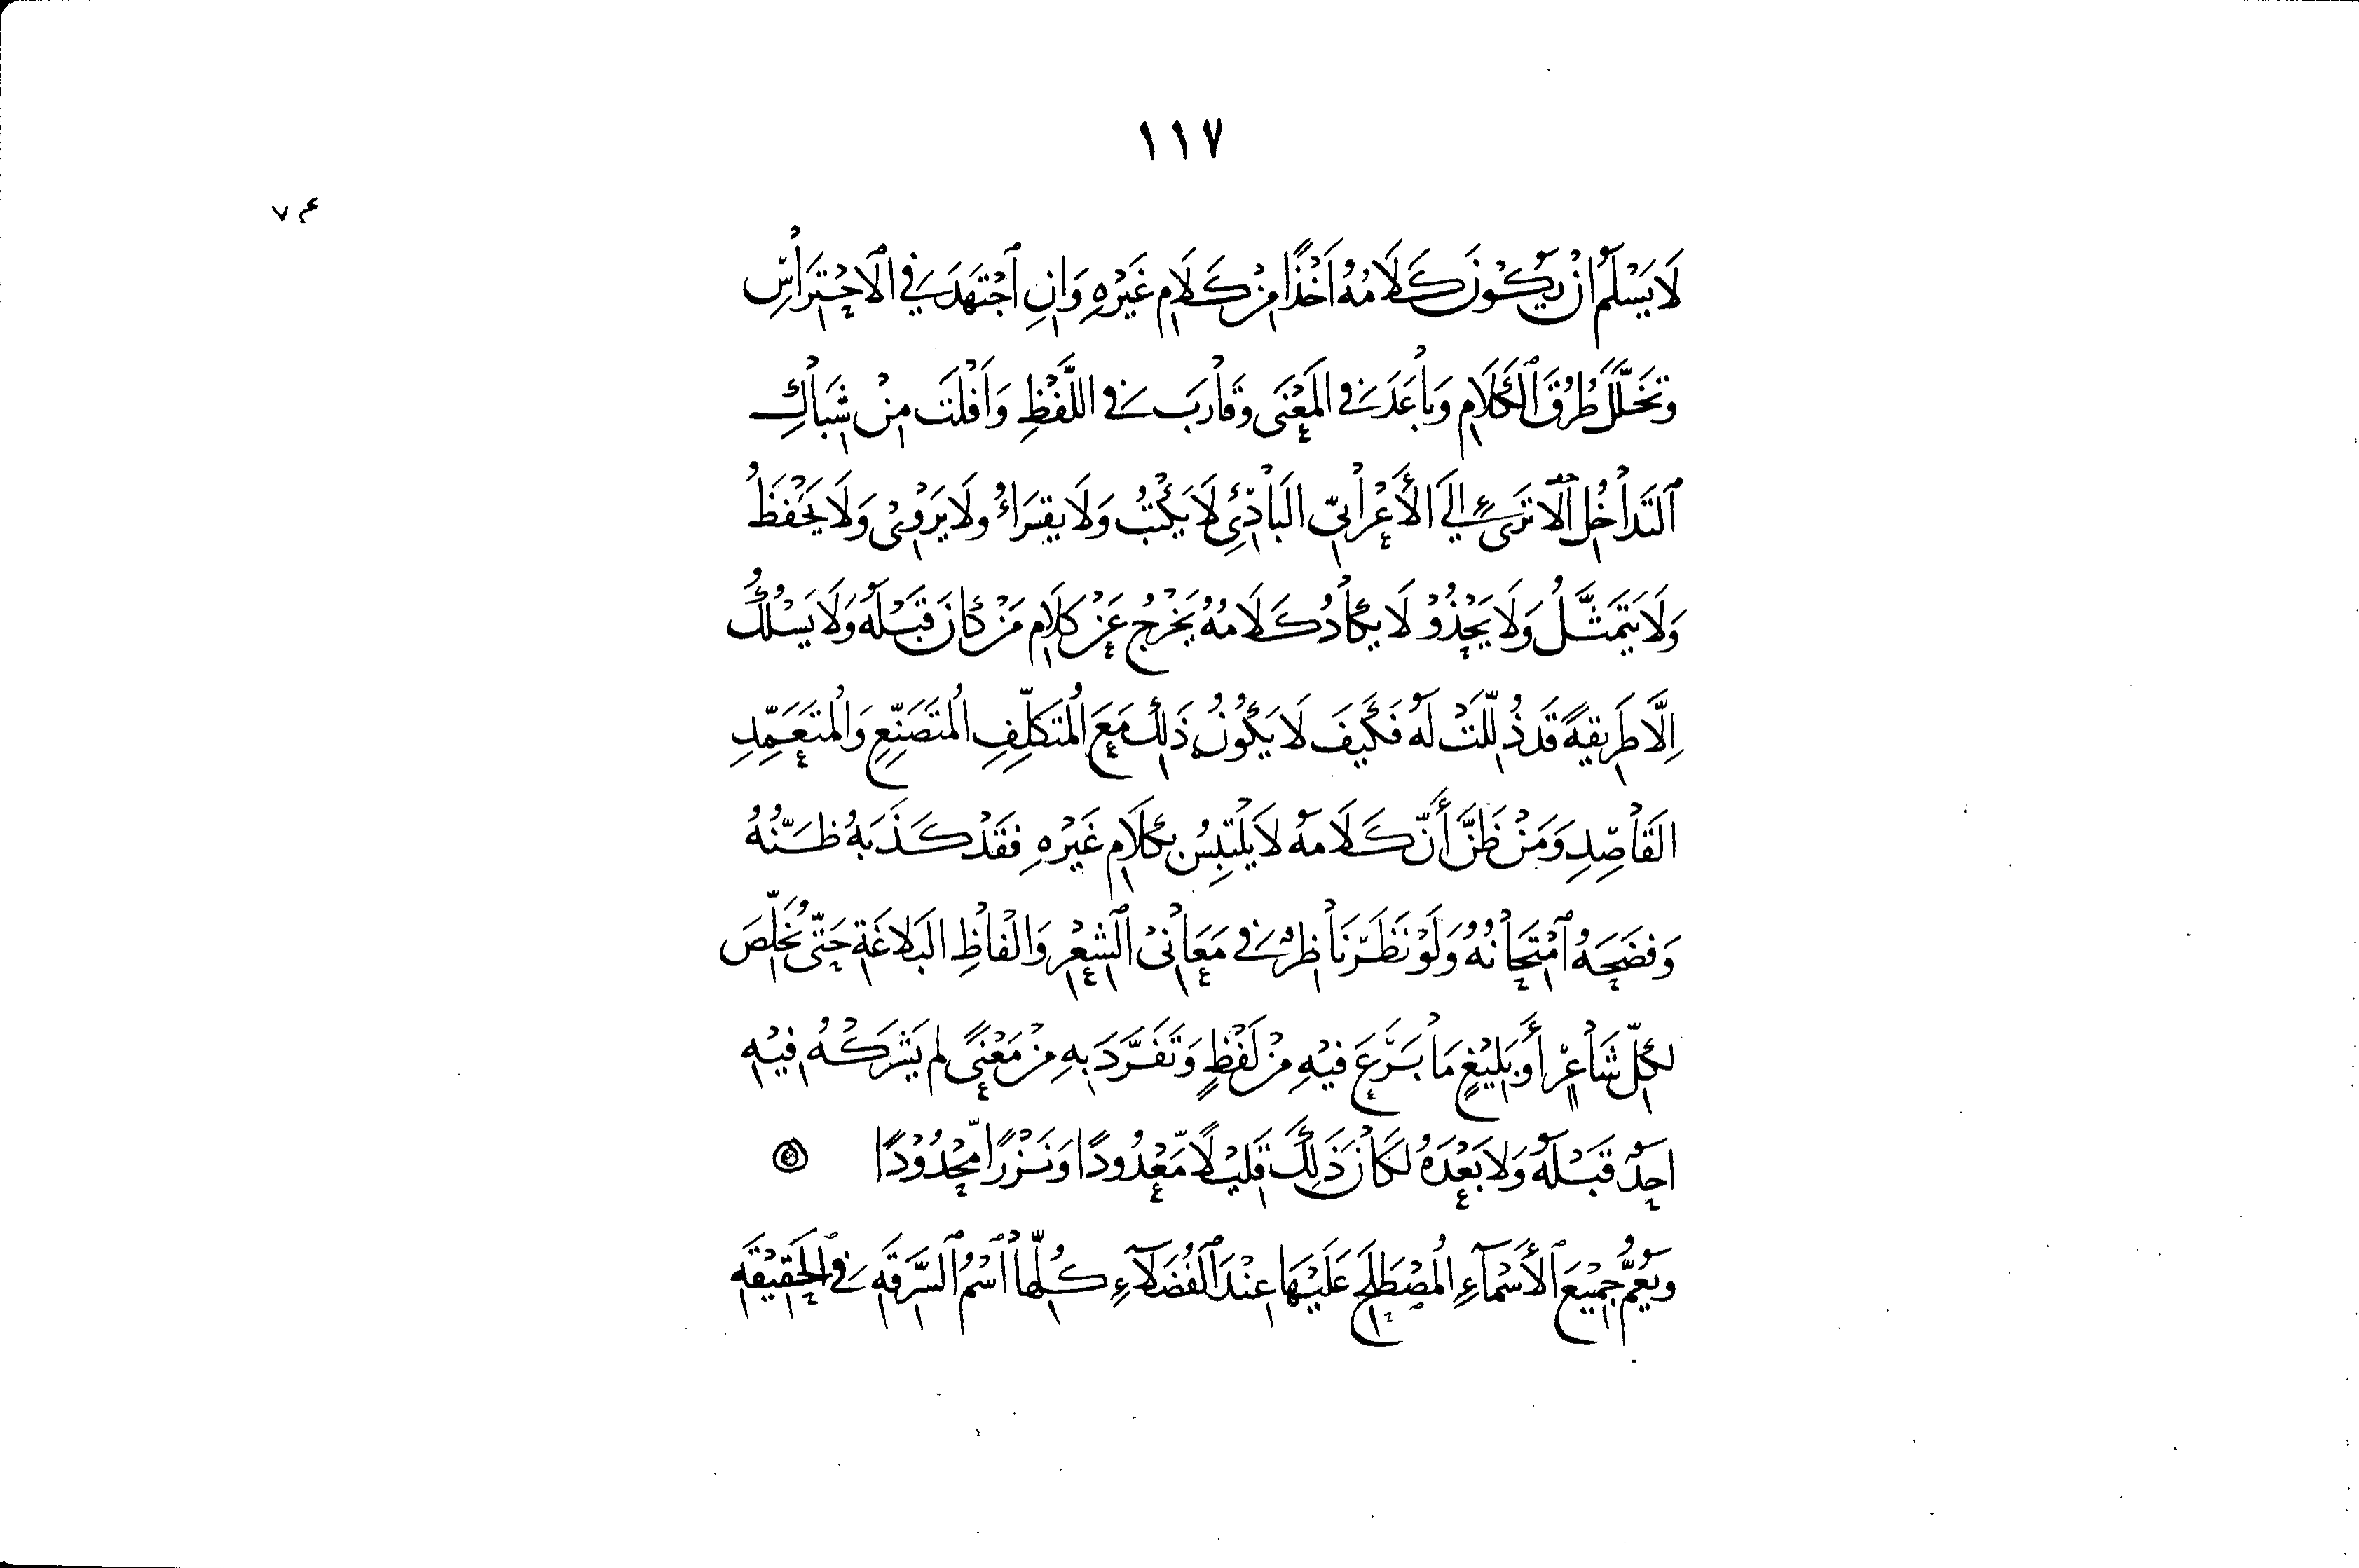 ١١٧
٧٤
لَا يَسْلَمُ اَنْ يَكُوْنَ كَلَامُهُ اَخْذًا مِنْ كَلَامِ غَيْرِهِ وَاِنِ ٱجْتَهَدَ فِي الْاِحْتِرَاْسِ
وَتَخَلَّلَ طُرُقَ ٱلْكَلَامِ وَبَاْعَدَ فِي الْمَعْنَى وَقَاْرَبَ فِي اللَّفْظِ وَاَفْلَتَ مِنْ شِبَاْكِ
ٱلتَدَاْخُلِ اَلَا تَرَىْ اِلَى الْأَعْرَاْبِيِّ الْبَاْدِئِ لَا يَكْتُبُ وَلَا يَقْرَاءُ وَلَا يَرْوِىْ وَلَا يَحْفَظُ
وَلَا يَتَمَثَّلُ وَلَا يَحْذُوْ لَا يَكَاْدُ كَلَامُهُ يَخْرُجُ عَنْ كَلَامِ مَنْ كَانَ قَبْلَهُ وَلَا يَسْلُكُ
اِلَّا طَرِيقَةً قَدْ ذُلِّلَتْ لَهُ فَكَيْفَ لَا يَكُوْنُ ذَلِكَ مَعَ الْمُتَكَلِّفِ الْمُتَصَنِّعِ وَالْمُتَعَمِّدِ
الْقَاْصِدِ وَمَنْ ظَنَّ أَنَّ كَلَامَهُ لَا يَلْتَبِسُ بِكَلَامِ غَيْرِهِ فَقَدْ كَذَبَهُ ظَنُّهُ
وَفَضَحَهُ ٱمْتِحَاْنُهُ وَلَوْ نَظَرَ نَاْظِرٌ فِي مَعَاْنِىْ ٱلْشِعْرِ وَالْفَاْظِ الْبَلَاغَةِ حَتَّى يُخَلِّصَ
لِكُلِّ شَاْعِرٍ أَوْ بَلِيْغٍ مَاْ بَرَعَ فِيْهِ مِنْ لَفْظٍ وَتَفَرَّدَ بِهِ مِنْ مَعْنًى لَمْ يَشْرَكْهُ فِيْهِ
اَحَدٌ قَبْلَهُ وَلَا بَعْدَهُ لَكَاْنَ ذَلِكَ قَلِيْلًا مَّعْدُودًا وَنَزْرًا مَّحْدُوْدًا
وَيَعُمُّ جَمِيْعَ ٱلْأَسْمَآءِ الْمُصْطَلَحِ عَلَيْهَا عِنْدَ ٱلْفُضَلَآءِ كُلِّهَا ٱسْمُ ٱلسَّرَقَةِ فِي ٱلْحَقِيْقَةِ